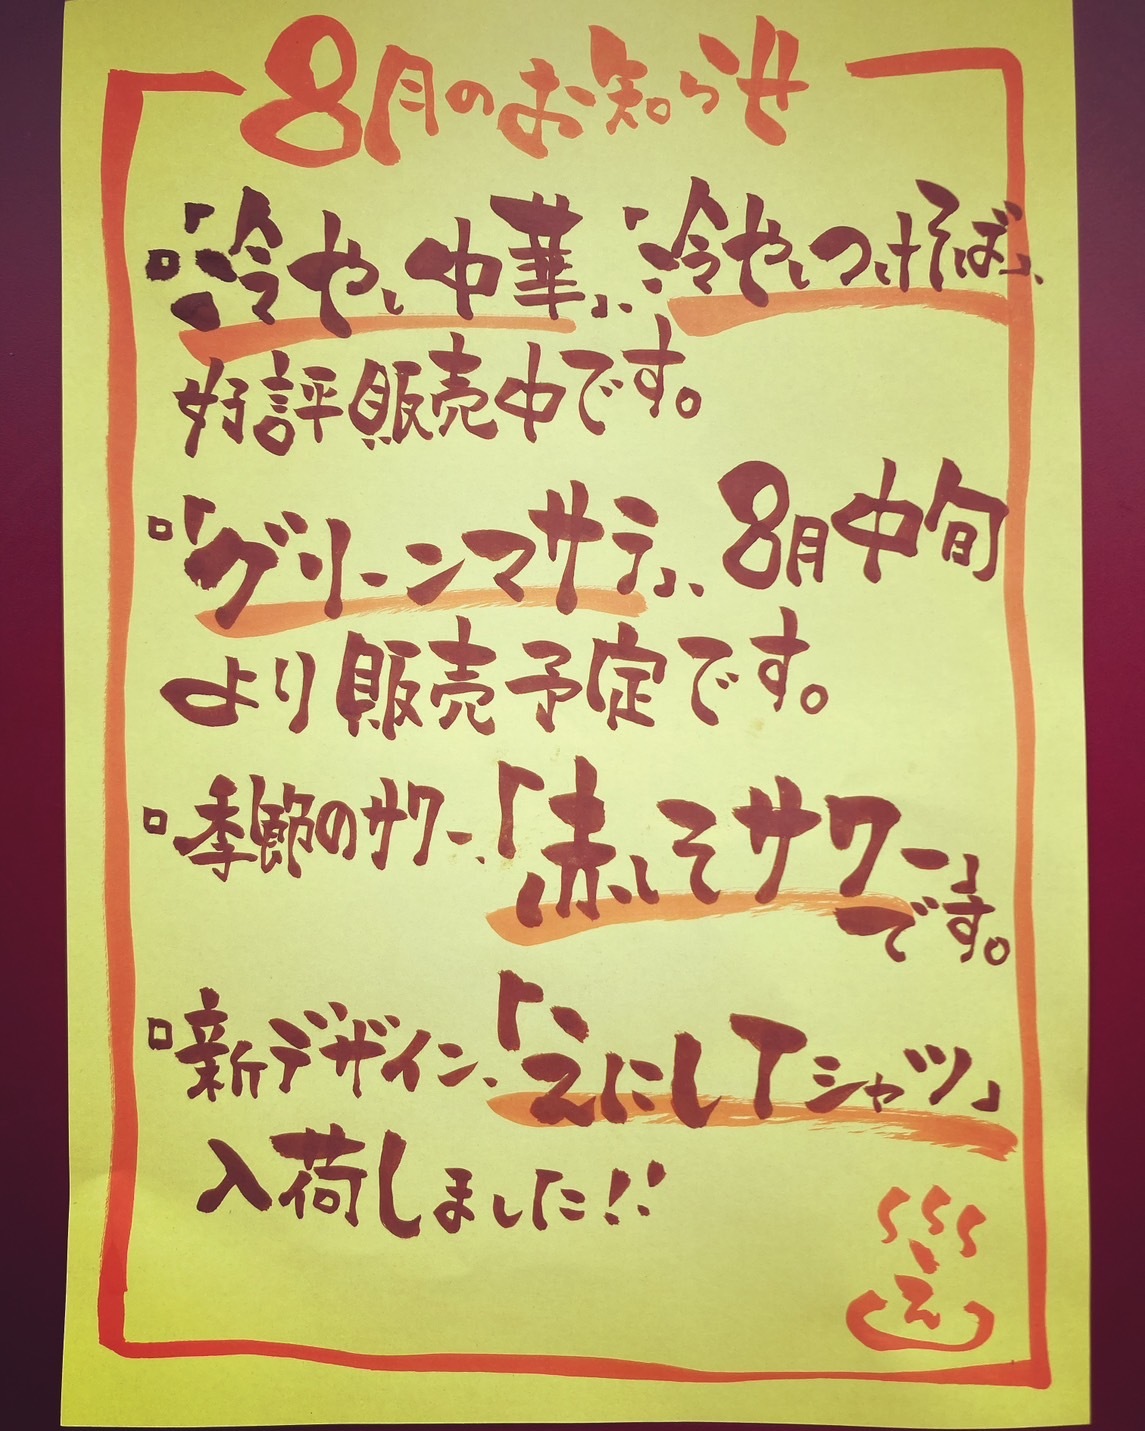 8月のお知らせ
▫「冷やし中華」、「冷やしつけそば」、
好評販売中です。
▫「グリーンマサラ」、8月中旬
より販売予定です。
▫季節のサワー、「赤しそサワー」
です。
▫新デザイン、「えにしTシャツ」
入荷しました!!
え